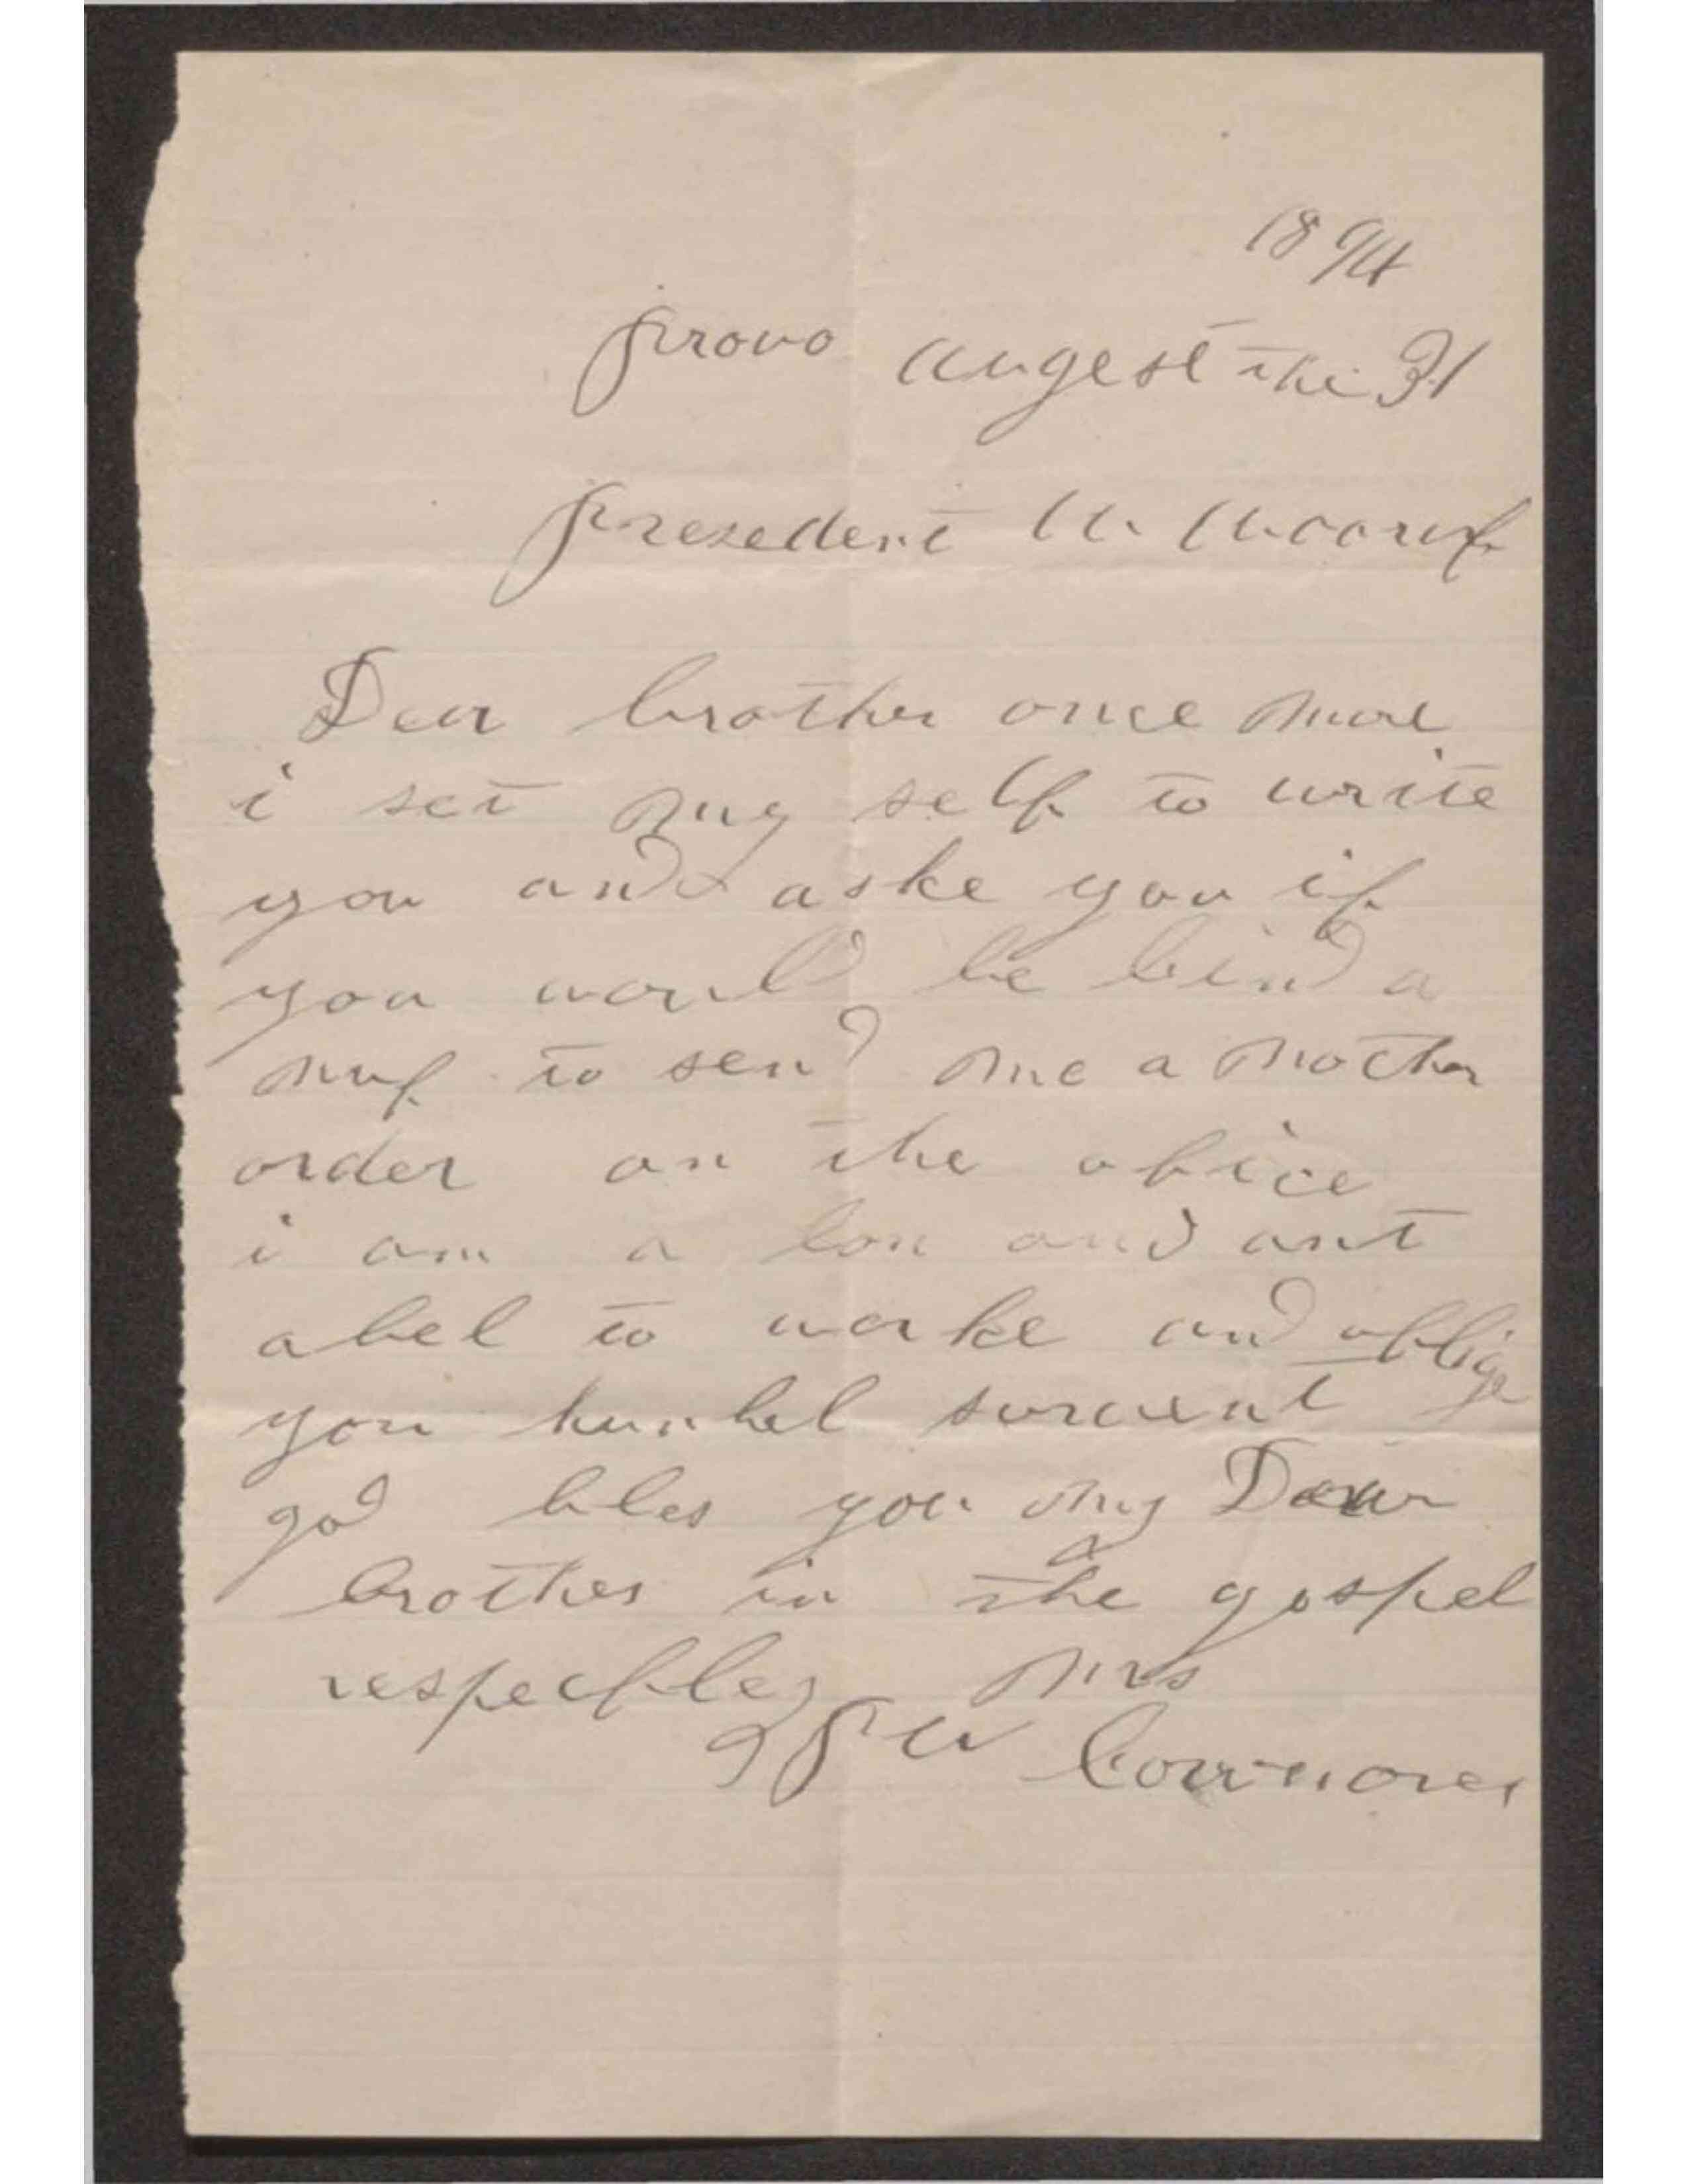 1894
provo augest the 31
presedent W Wooruf
Dear brother once more
i set my self to write
you and aske you if
you would be kind a
nuf to send me a nother
order on the ofice
i am a lon and ant
abel to worke and oblige
you humbel survent
god bles you my Dear
brother in the gospel
respecfley Mrs
W Connores